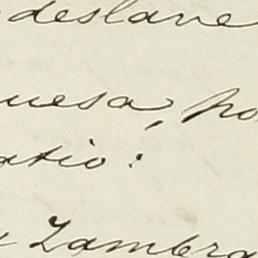 deslave
uesa, po
atio:
Zambra